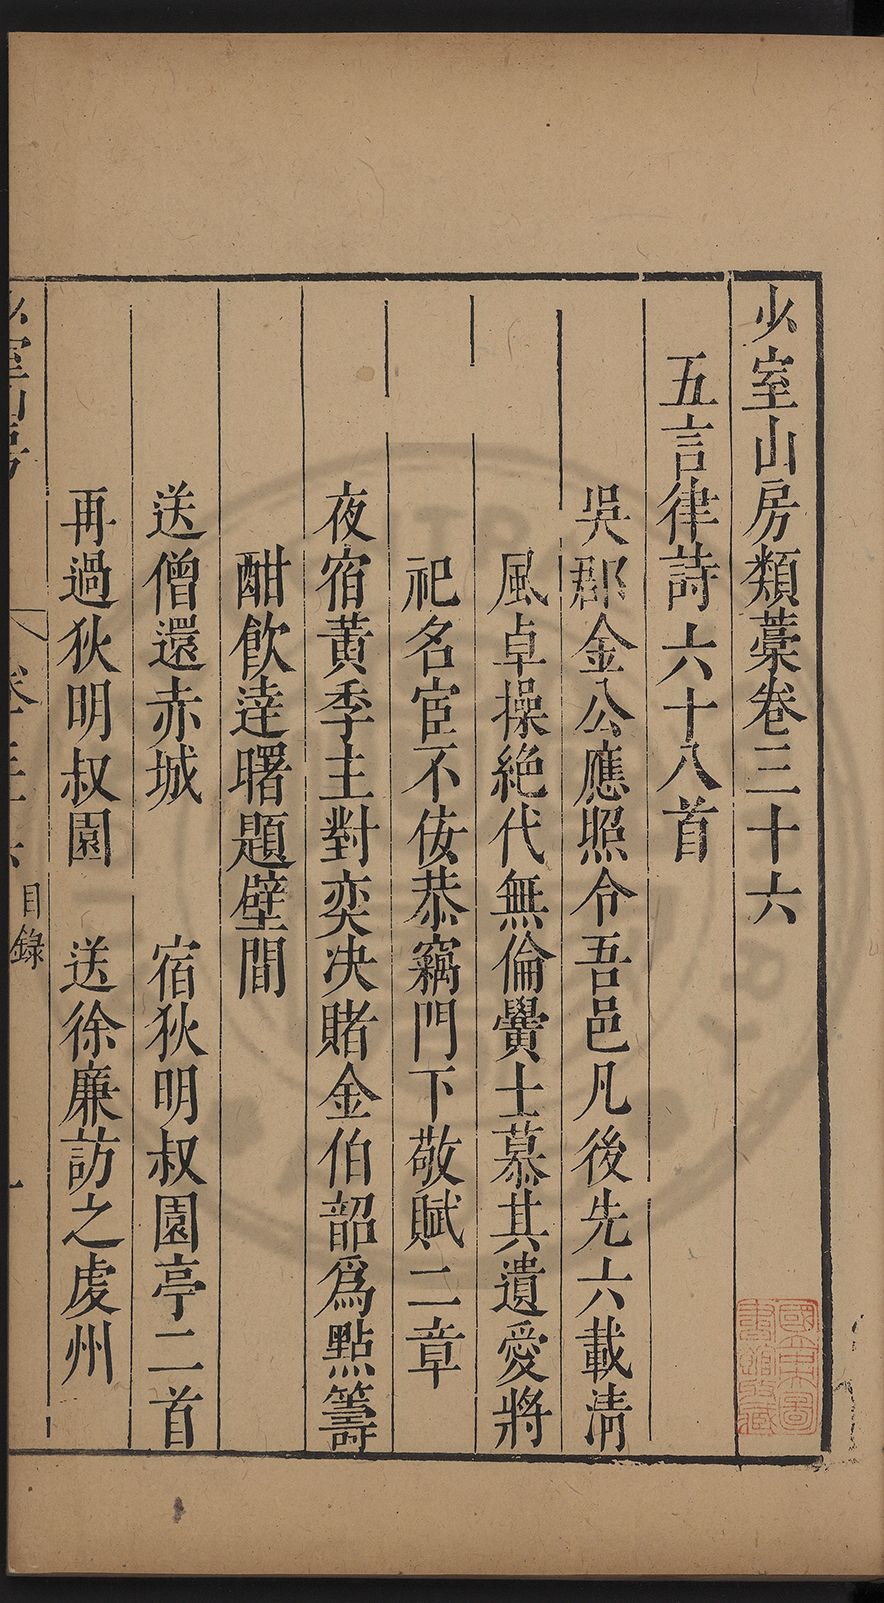 少室山房類藁卷三十六
五言律詩六十八首
吳郡金公應照令吾邑凡後先六載清
風卓操絶代無倫黌士慕其遺愛將
祀名宦不佞恭竊門下敬賦二章
夜宿黃季主對奕决賭金伯韶爲點籌
酣飲達曙題壁間
送僧還赤城 宿狄明叔園亭二首
再過狄明叔園 送徐廉訪之處州
少室山房 卷三十六 目錄 一
國立中央圖書館收藏